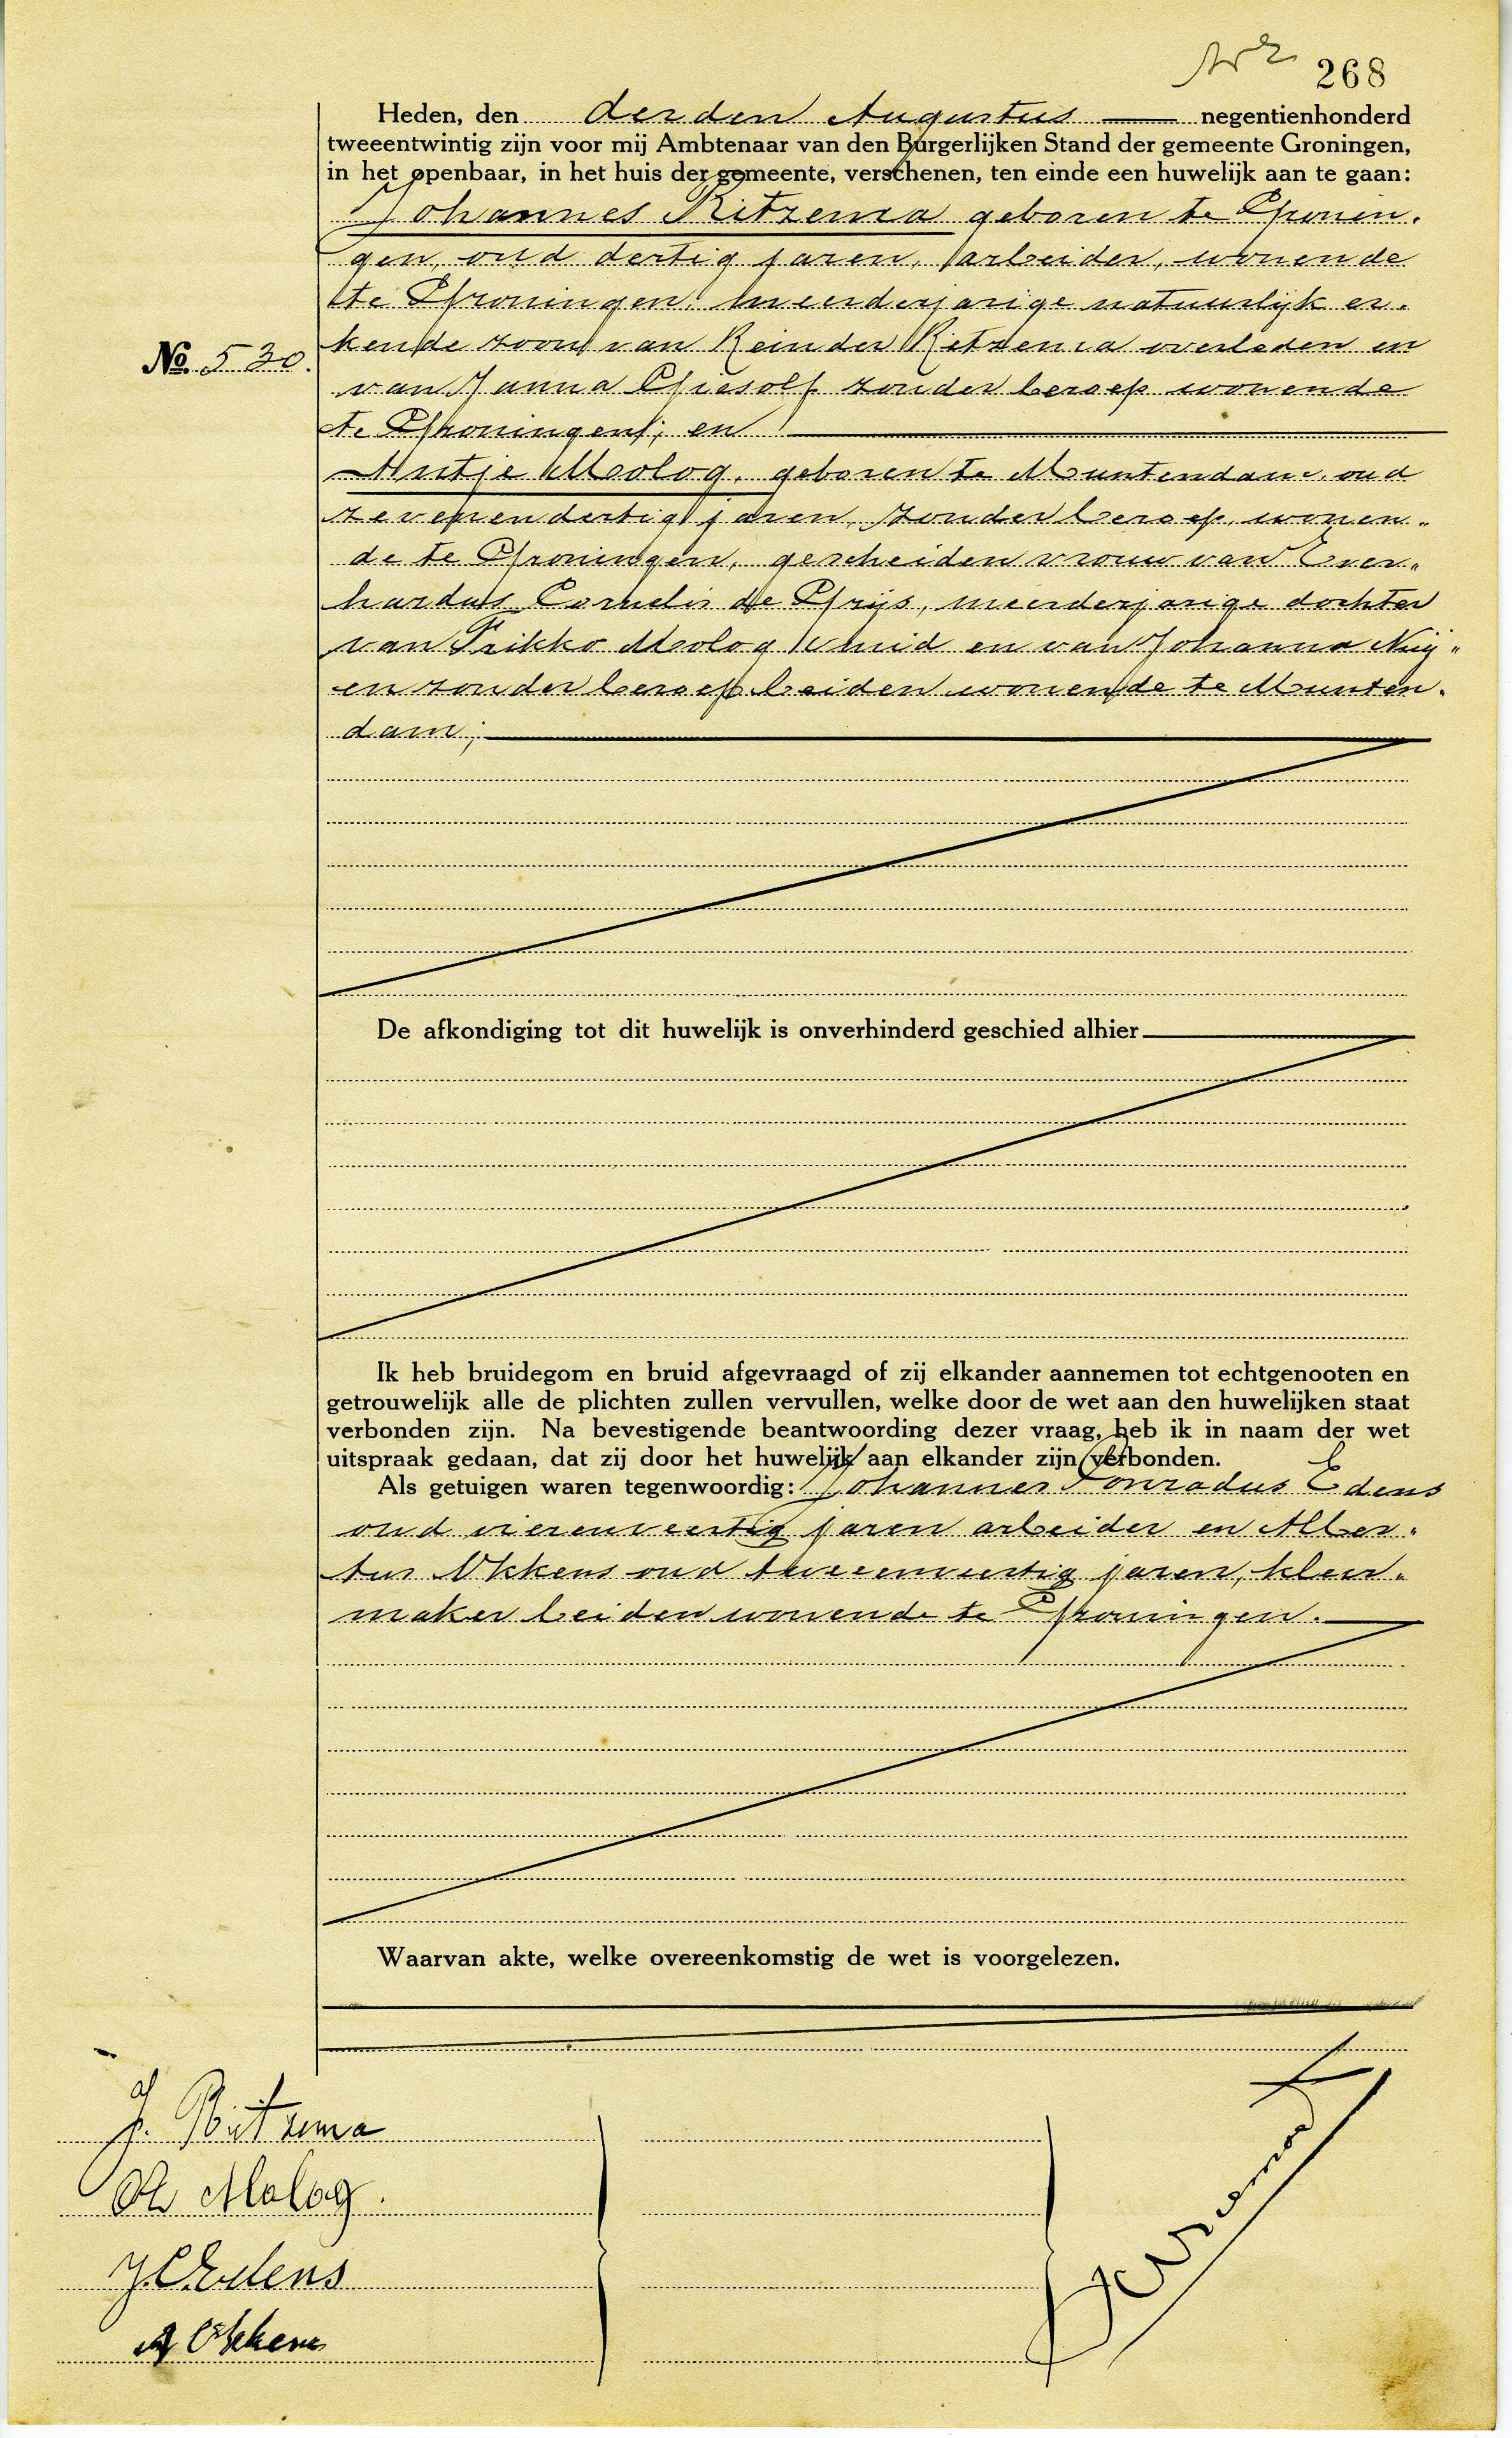 268
Heden, den derden Augustus negentienhonderd
tweeentwintig zijn voor mij Ambtenaar van den Burgerlijken Stand der gemeente Groningen,
in het openbaar, in het huis der gemeente, verschenen, ten einde een huwelijk aan te gaan:
Johannes Ritzema geboren te Gronin.
gen, oud dertig jaren, arbeider, wonende
te Groningen, meerderjarige natuurlijk er.
kende zoon van Reinder Ritzema overleden en
No. 530.
van Janna Griesolf zonder beroep wonende
te Groningen; en
Antje Molog, geboren te Muntendam, oud
zevenendertig jaren, zonder beroep, wonen„
de te Groningen, gescheiden vrouw van Ever„
hardus Cornelis de Grijs, meerderjarige dochter
van Frikko Molog smid en van Johanna
en zonder beroep beiden wonende te Munten.
dam;
De afkondiging tot dit huwelijk is onverhinderd geschied alhier
Ik heb bruidegom en bruid afgevraagd of zij elkander aannemen tot echtgenooten en
getrouwelijk alle de plichten zullen vervullen, welke door de wet aan den huwelijken staat
verbonden zijn. Na bevestigende beantwoording dezer vraag, heb ik in naam der wet
uitspraak gedaan, dat zij door het huwelijk aan elkander zijn verbonden.
Als getuigen waren tegenwoordig: Johannes Conradus Edens
oud vierenveertig jaren arbeider en Alber„
tus Okkens oud tweeenveertig jaren, kleer„
maker beiden wonende te Groningen.
Waarvan akte, welke overeenkomstig de wet is voorgelezen.
J. Ritzema
A Molog.
J.C. Edens
A Okkens